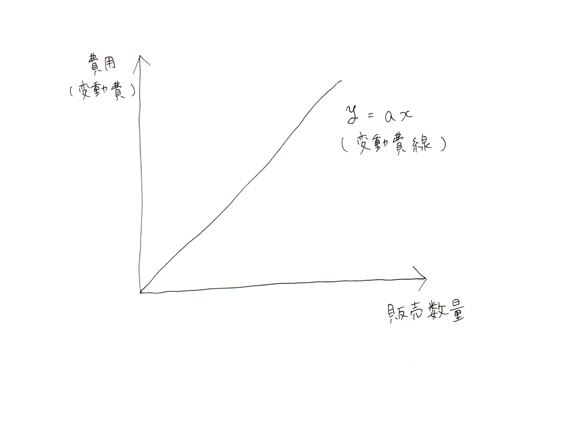 費用
(変動費)
y = ax
(変動費線)
販売数量